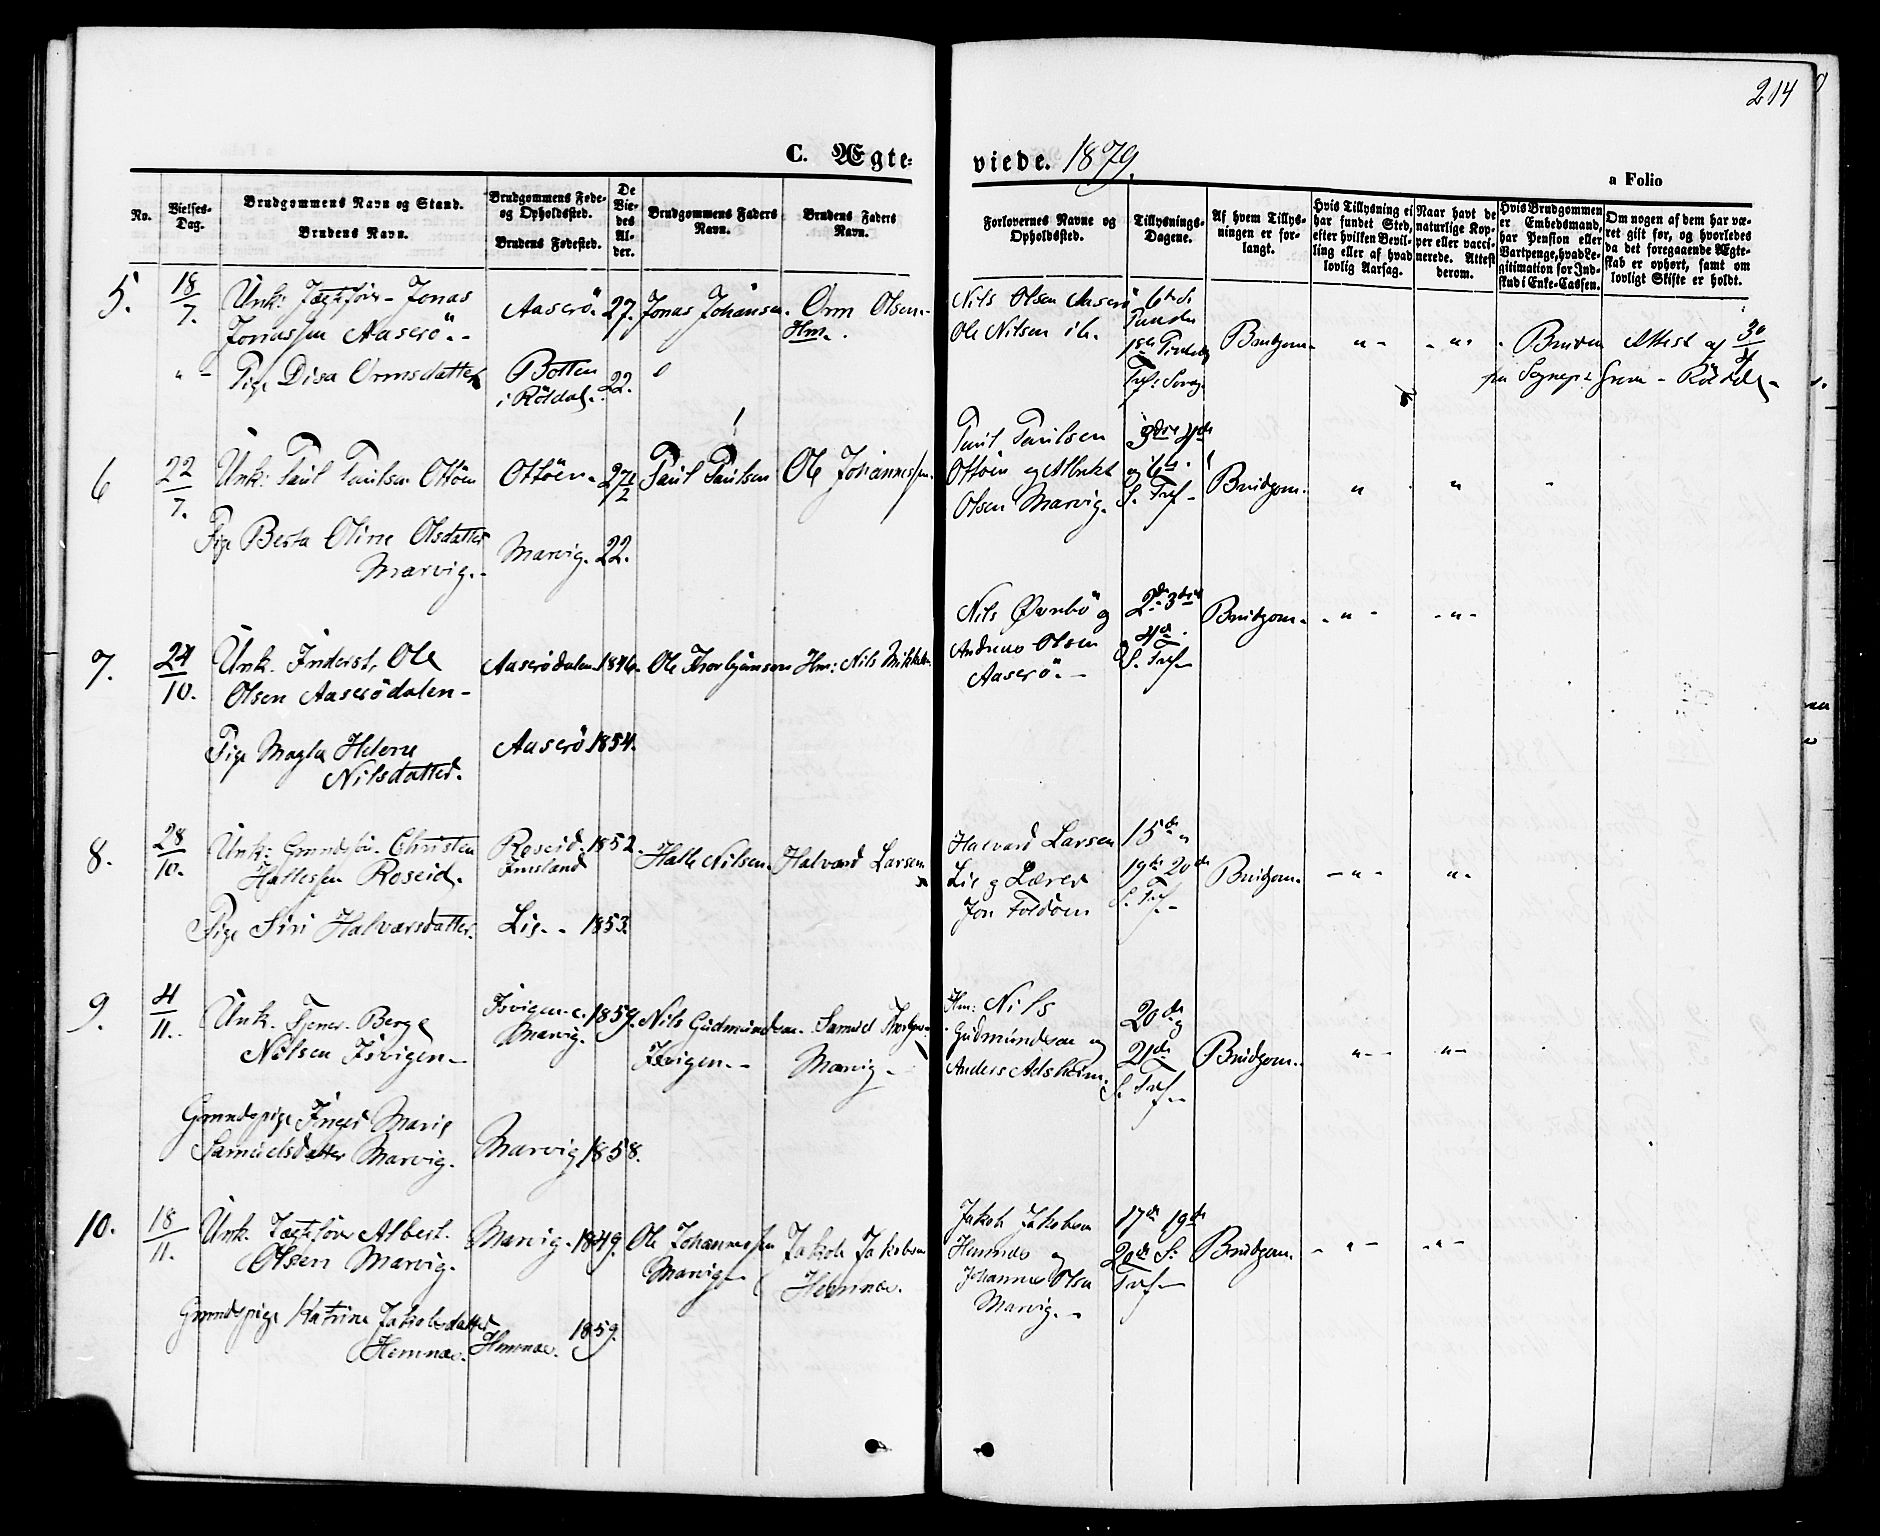 214
C. Ægteviede. 1879.
a Folio
No.
Vielses-Dag.
Brudgommens Navn og Stand.
Brudens Navn.
Brudgommens Føde- og Opholdssted.
Brudens Fødested.
De Viedes Alder.
Brudgommens Faders Navn.
Brudens Faders Navn.
Forlovernes Navne og Opholdssted.
Tillysnings-Dagene.
Af hvem Tillysningen er forlangt.
Hvis Tillysning ei har fundet Sted, efter hvilken Bevilling eller af hvad lovlig Aarsag.
Naar havt de naturlige Kopper eller vaccinerede. Attest derom.
Hvis Brudgommen er Embedsmand, har Pension eller Vartpenge, hvad Legitimation for Indskud i Enke-Cassen.
Om nogen af dem har været gift før, og hvorledes da det foregaaende Ægteskab er ophørt, samt om lovligt Skifte er holdt.
5. 18/7. Unk: Jægtfører - Jonas
Jonassen Aaserö. -
Aaserö 27. Jonas Johansen. Orm Olsen.
Hm.
Pige Disa Ormsdatter
Botten
i Röldal. 22.
Nils Olsen Aaserö
Ole Nilsen ib.
6te S.
Brudgom. - " - - " -
Bruden Attest af 30/
fra Sognepr. - Röldal -
6 22/7. Unk: Paul Paulsen Ottöen
Ottöen. 27 1/2 Paul Paulsen Ole Johannessen.
Pige Berta Oline Olsdatter
Marvig. -
Marvig. 22.
Paul Paulsen
Ottöen og Albrekt
Olsen Marvig.
3die 4de
og 6te
S. Tref. -
Brudgom. " "
7. 24/10. Unk. Inderst, Ole
Olsen Aaserödalen -
Aaserödalen 1846. Ole Thorbjörnsen Hm: Nils Mikkels.
Pige Magla Helene
Nilsdatter.
Aaserö 1854.
Nils Øvrebö og
Andreas Olsen
Aaserö. -
2den 3die
4de
S. Tref -
Brudgom. - " - - " -
8. 28/10. Unk: Christen
Hallessen Roseid.
Roseid.
Imsland
1852. Halle Nilsen. Halvard Larsen
Pige Siri Halvarsdatter.
Lie - - 1853.
Halvard Larsen
Lie og Lærer
Jon Foldöen
15de
19de 20de
S. Tref. -
Brudgom. - " - " -
9. 4/11. Unk. Tjener. Berge
Nilsen Isvigen -
Isvigen
Marvig.
1859. Nils Gudmundsen. Samuel
Isvigen. - Marvig -
Grundspige Inger Marie
Samuelsdatter Marvig.
Marvig 1858.
Hm: Nils
Gudmundsen og
Anders
20de og
21de
S. Tref. -
Brudgom. " - - " -
10. 18/11. Unk. Jægtfører Albert.
Olsen Marvig.
Marvig. 1849. Ole Johannessen Jakob Jakobsen
Marvig - Hemnæs.
Grundspige Katrine Jakobsdatter
Hemnæs.
Hemnæs. 1859.
Jakob Jakobsen
Hemnæs og
Johannes Olsen
Marvig. -
17de 19de
20de S.
Tref -
Brudgom. - " - - " -